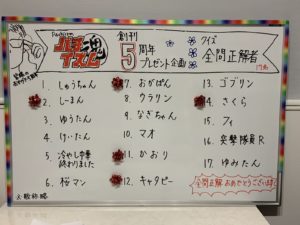 パチ魂イズム
創刊5周年プレゼント企画
クイズ
全問正解者
17名
1. しゅうちゃん
2. しーまん
3. ゆうたん
4. けいたん
5. 冷やし中華終わりました
6. 桜マン
7. おかぱん
8. ウラリン
9. なぎちゃん
10. マオ
11. かおり
12. キャタピー
13. ゴブリン
14. さくら
15. フィ
16. 突撃隊員R
17. ゆみたん
全問正解おめでとうございます!
※敬称略